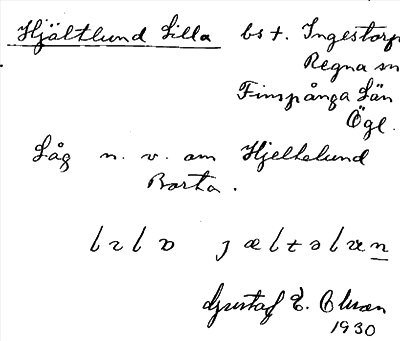 Hjältlund Lilla bst. Ingestorp
Regna sn
Finspånga Län
Ögl.
Låg n. v. om Hjeltelund
Borta.
Gustaf E. Olsson
1930